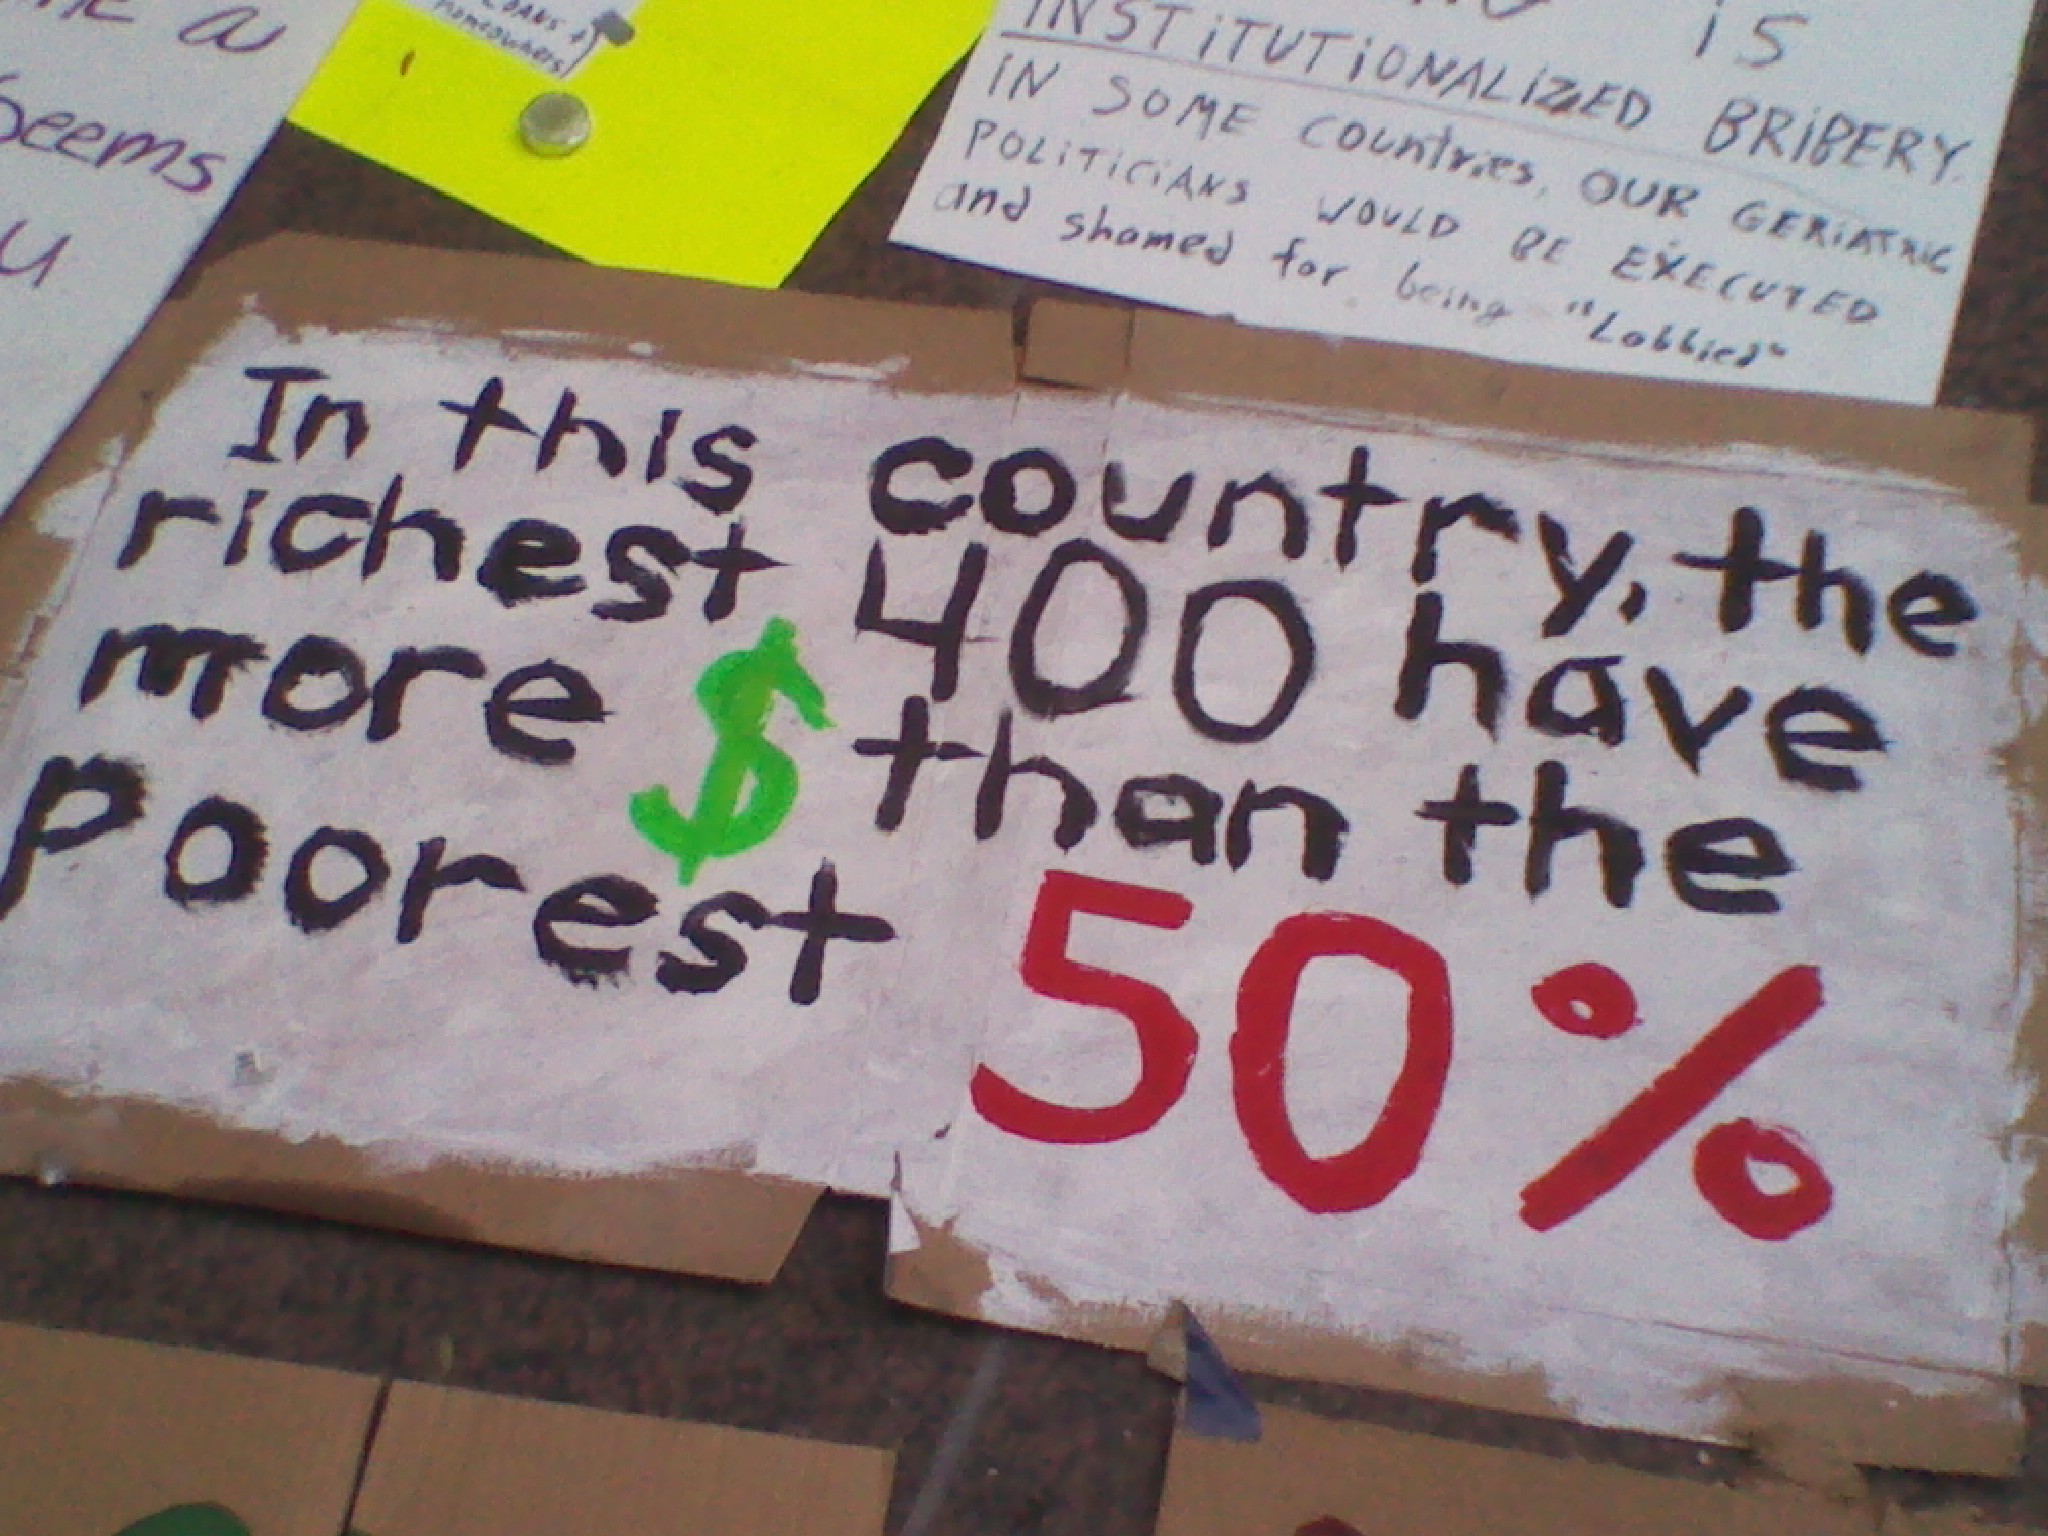 a
seems
u
homeowners
is
INSTITUTIONALIZED BRIBERY.
IN SOME countries, OUR GERIATRIC
POLITICIANS WOULD BE EXECUTED
and shamed for being "Lobbied"
In this country, the
richest 400 have
more $ than the
poorest 50%